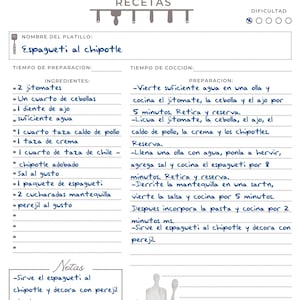 RECETAS
DIFICULTAD
NOMBRE DEL PLATILLO:
Espagueti al chipotle
TIEMPO DE PREPARACIÓN:
TIEMPO DE COCCIÓN:
INGREDIENTES:
-2 jitomates
-Un cuarto de cebollas
-1 diente de ajo
suficiente agua
-1 cuarto taza caldo de pollo
-1 taza de crema
-1 cuarto de taza de chile -
chipotle adobado
-Sal al gusto
-1 paquete de espagueti
-2 cucharadas mantequilla
-perejil al gusto
PREPARACION:
-Vierte suficiente agua en una olla y
cocina el jitomate, la cebolla y el ajo por
5 minutos. Retira y reserva.
-Licua el jitomate, la cebolla, el ajo, el
caldo de pollo, la crema y los chipotles.
Reserva.
-Llena una olla con agua, ponla a hervir,
agrega sal y cocina el espagueti por 8
minutos. Retira y reserva.
-Derrite la mantequilla en una sartn,
vierte la salsa y cocina por 5 minutos.
Despues incorpora la pasta y cocina por 2
minutos ms.
-Sirve el espagueti al chipotle y decora con
perejil
Notas
-Sirve el espagueti al
chipotle y decora con perejil